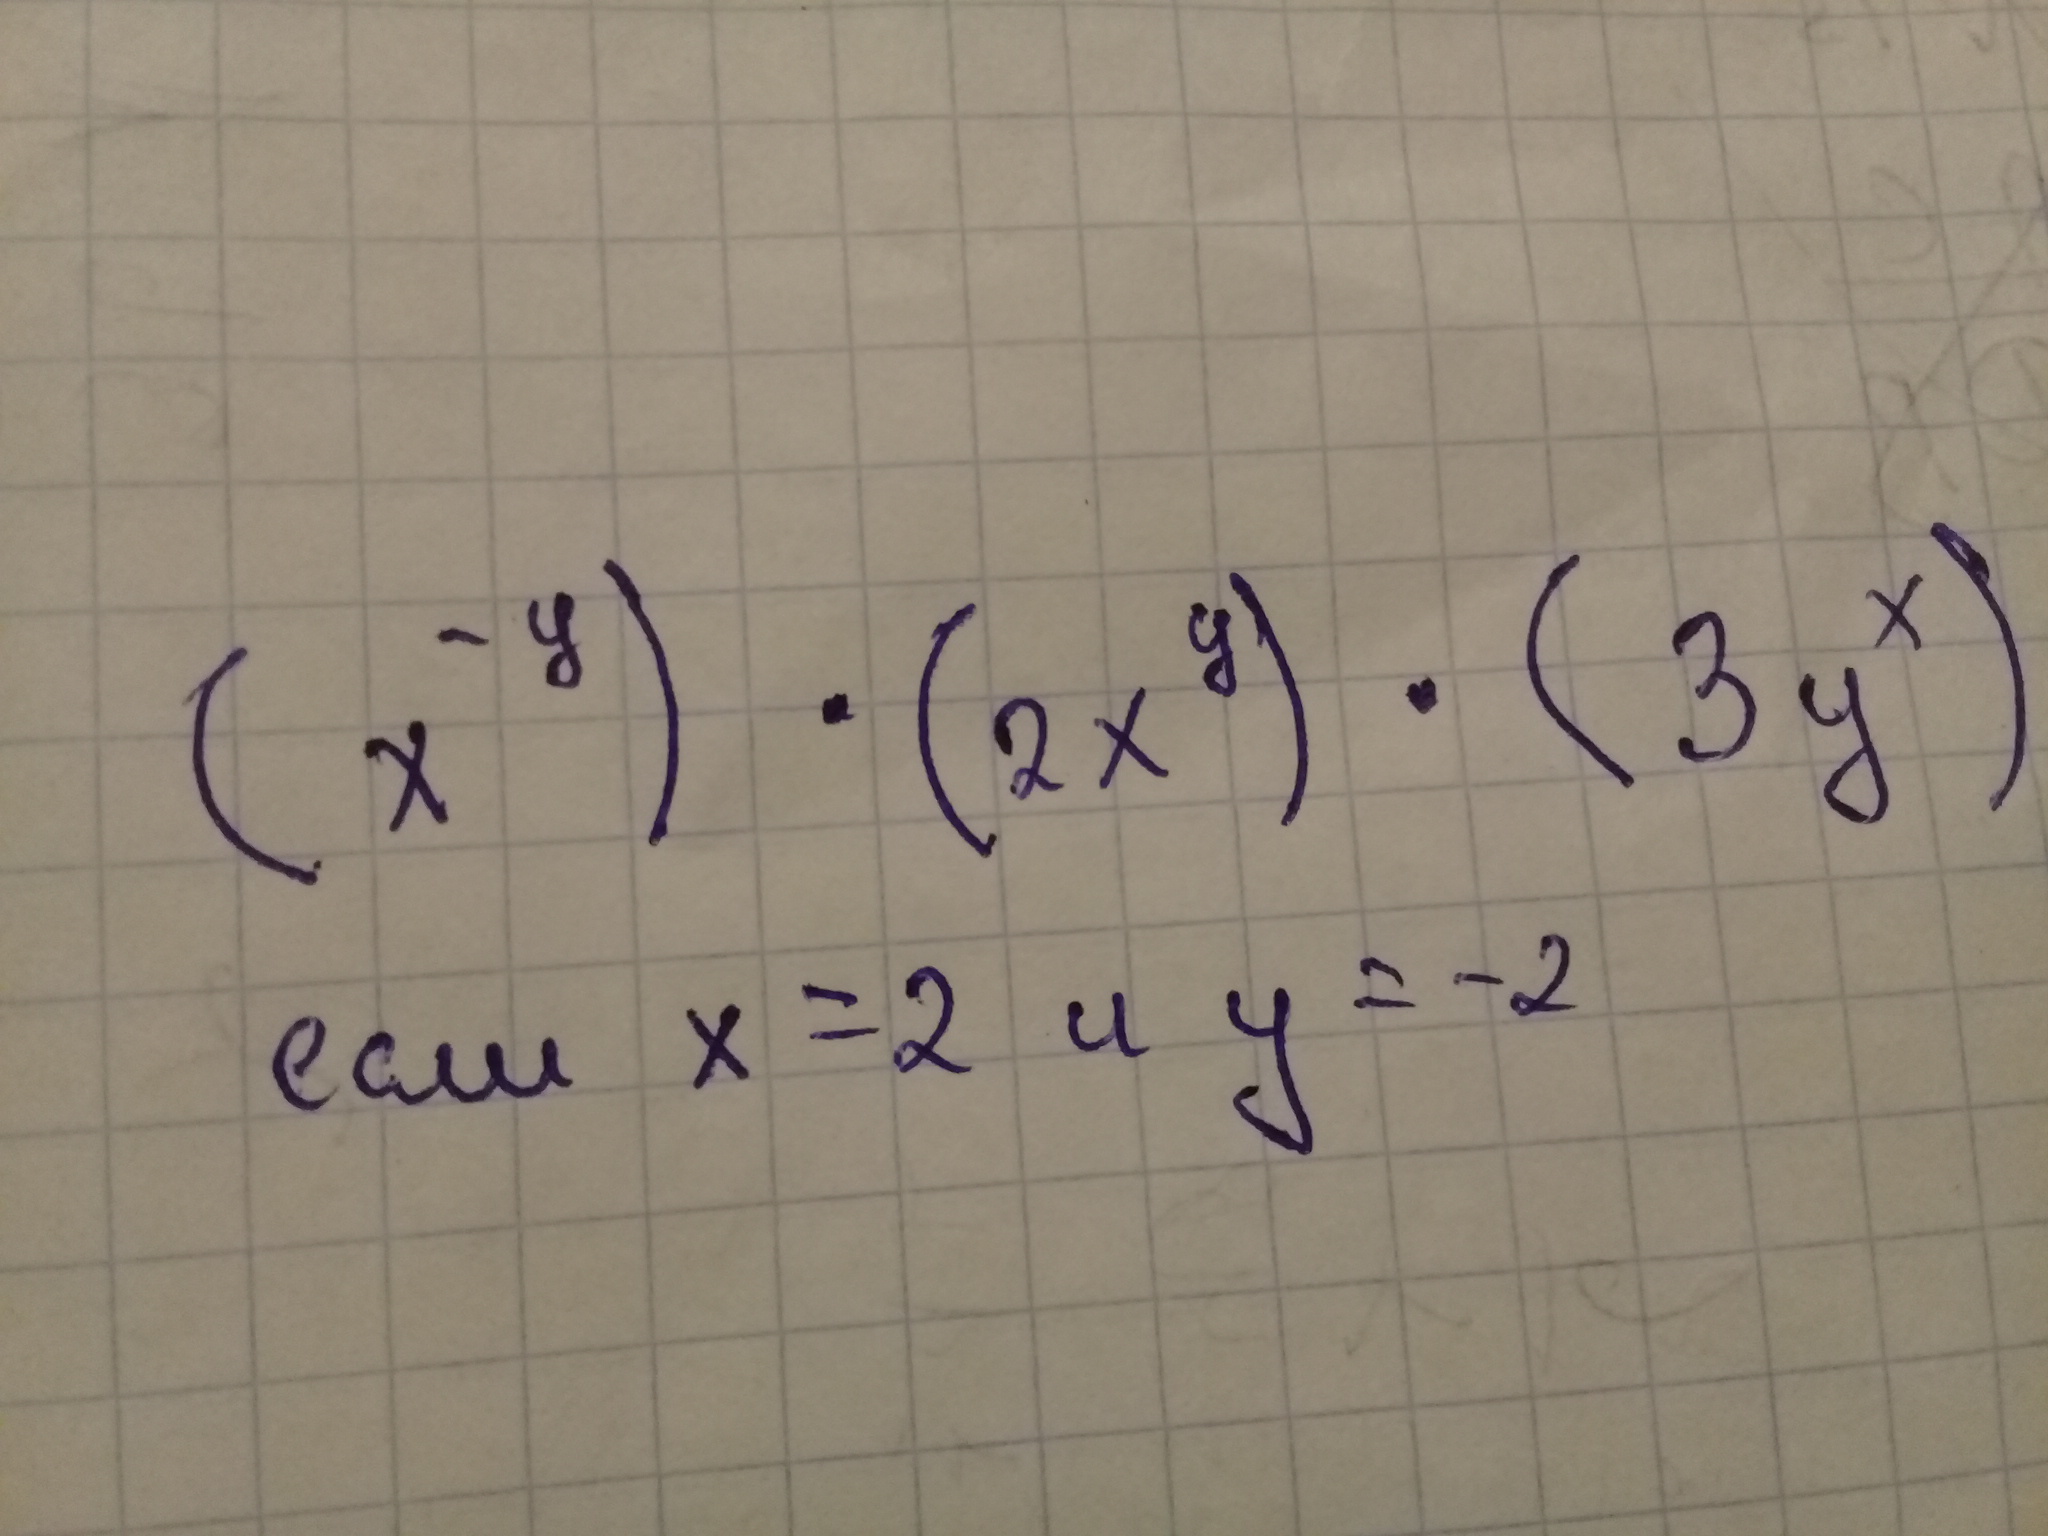 (x^{-y}) · (2x^y) · (3y^x)
если x = 2 и y = -2